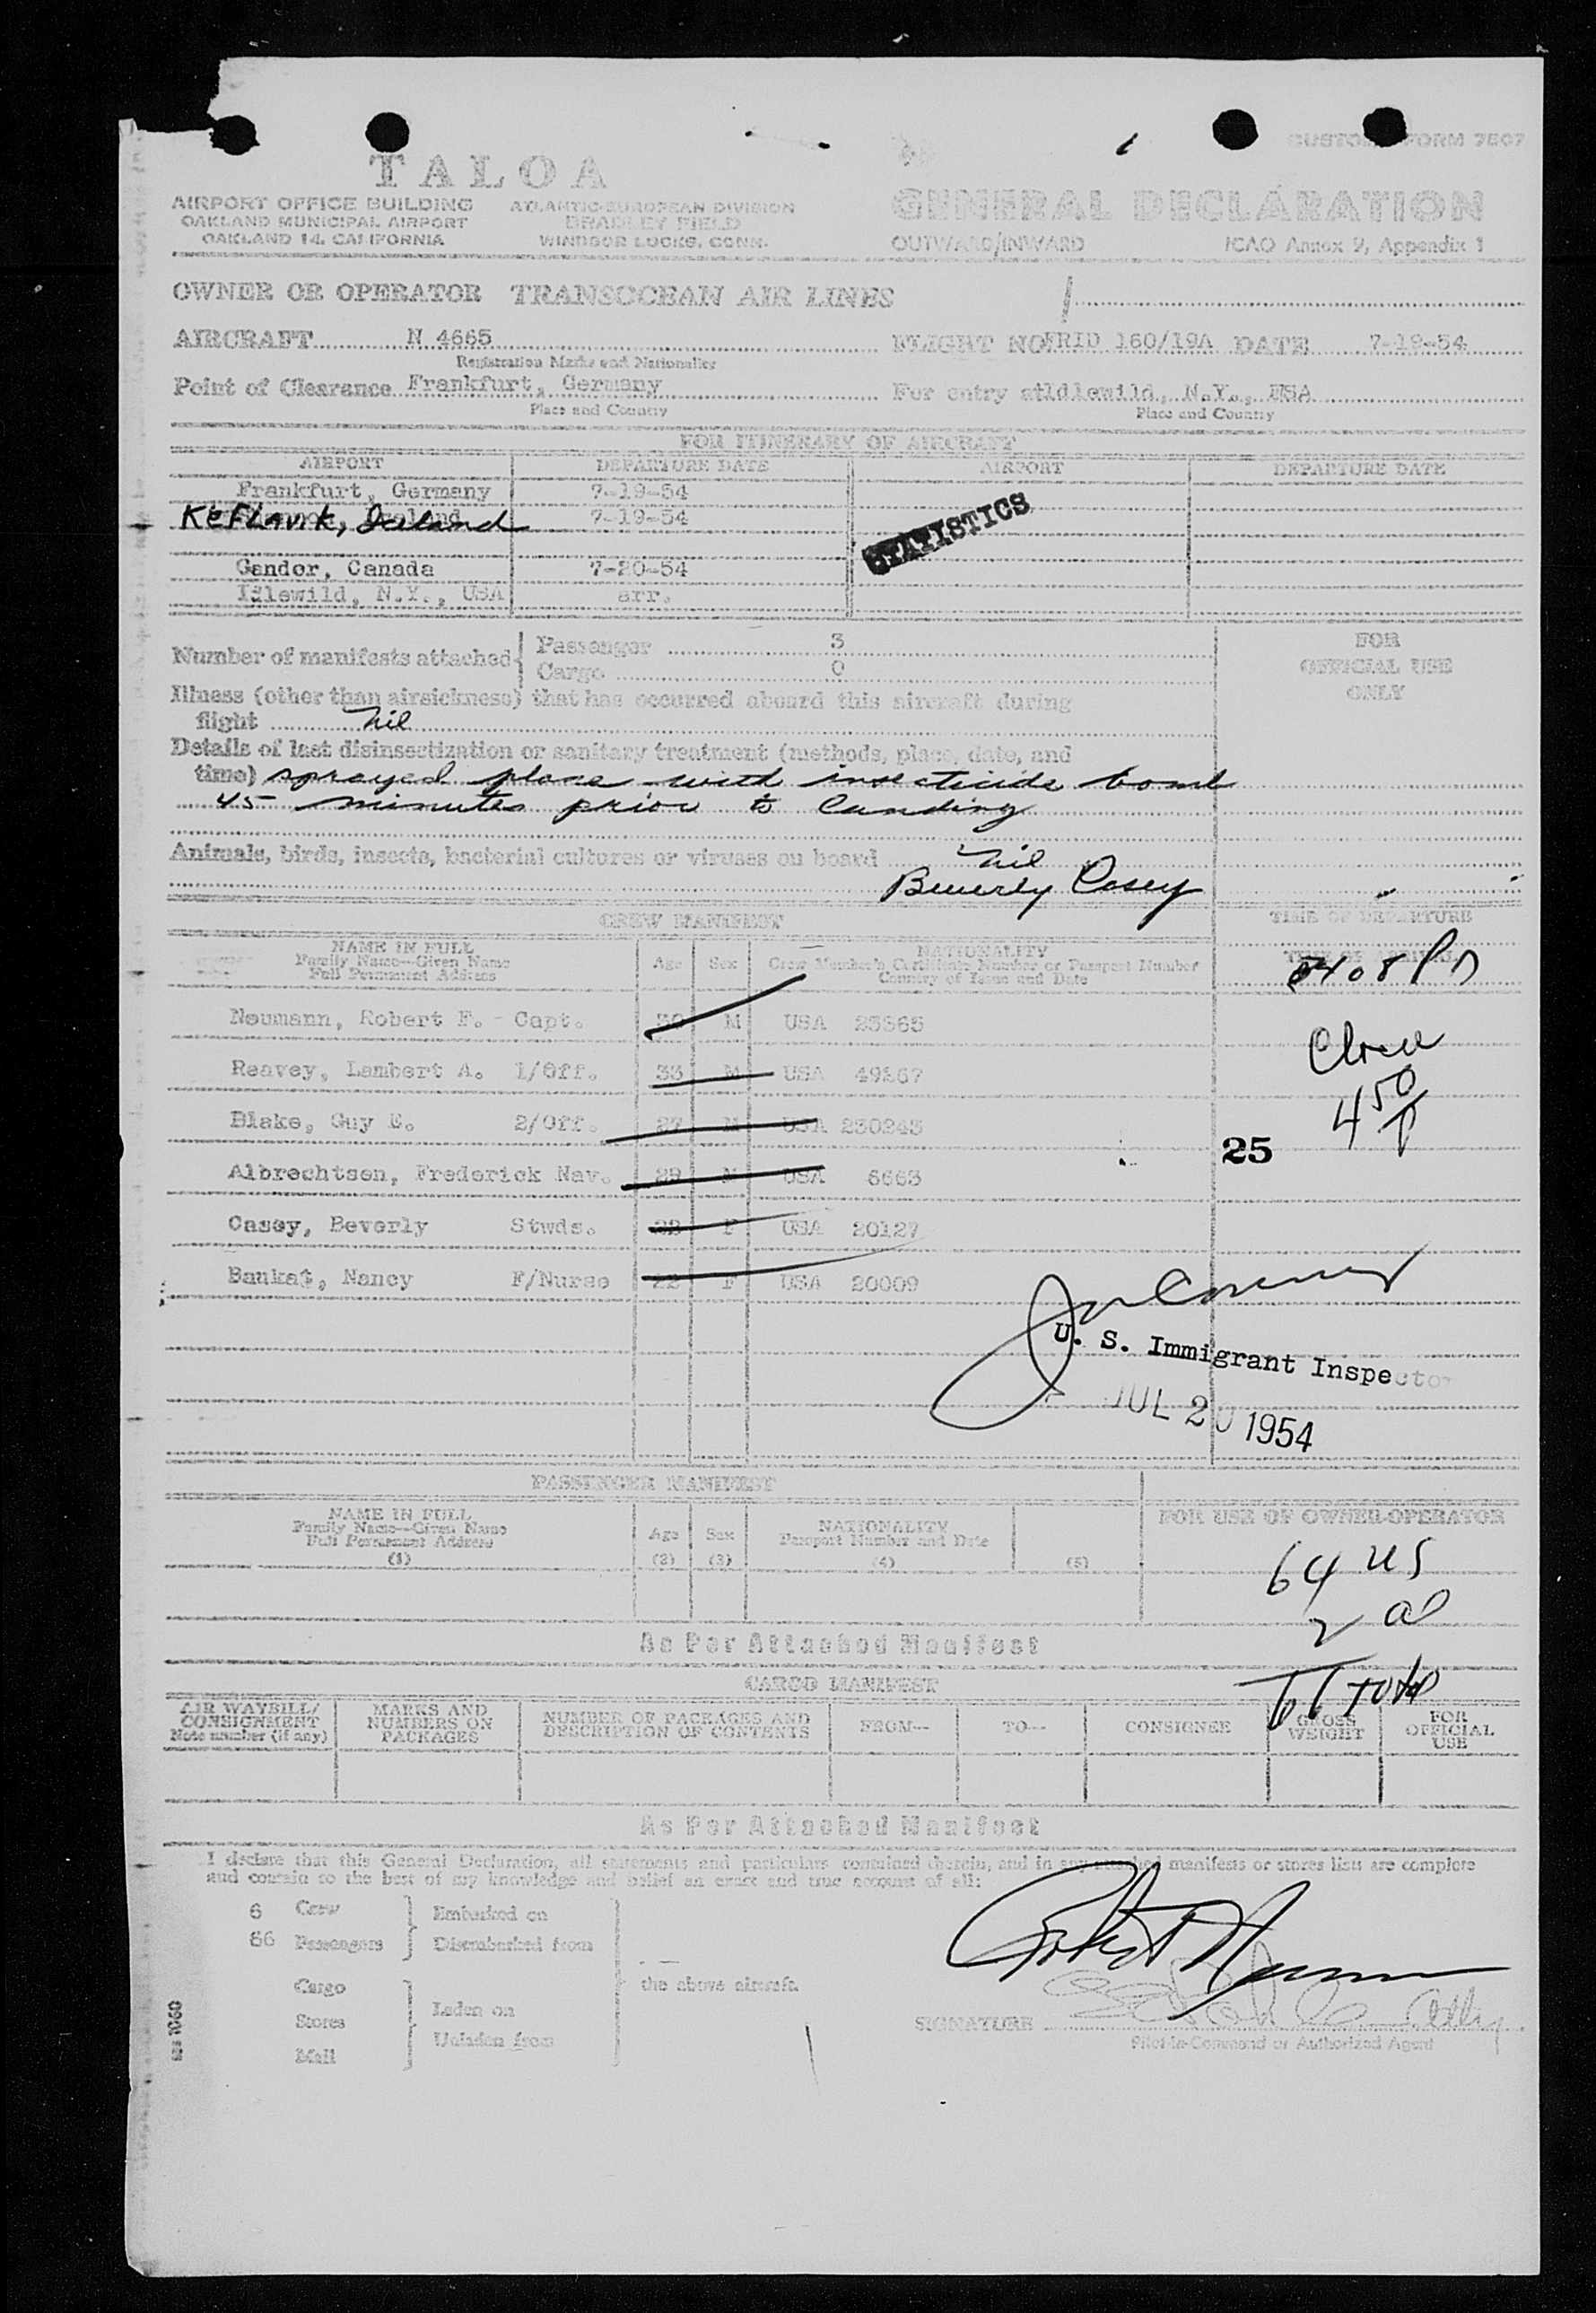 CUSTOMS FORM 7507
TALOA
AIRPORT OFFICE BUILDING
OAKLAND MUNICIPAL AIRPORT
OAKLAND 14, CALIFORNIA
ATLANTIC-EUROPEAN DIVISION
BRADLEY FIELD
WINDSOR LOCKS, CONN.
GENERAL DECLARATION
OUTWARD/INWARD ICAO Annex 9, Appendix 1
OWNER OR OPERATOR TRANSOCEAN AIR LINES
AIRCRAFT N 4665 FLIGHT NO FRID 160/19A DATE 7-19-54
Registration Marks and Nationality
Point of Clearance Frankfurt, Germany For entry at Idlewild, N.Y., USA
Place and Country Place and Country
FOR ITINERARY OF AIRCRAFT
AIRPORT DEPARTURE DATE AIRPORT DEPARTURE DATE
Frankfurt, Germany 7-19-54
Keflavik, Iceland 7-19-54
STATISTICS
Gander, Canada 7-20-54
Idlewild, N.Y., USA arr.
Number of manifests attached Passenger 3
Cargo 0
FOR
OFFICIAL USE
ONLY
Illness (other than airsickness) that has occurred aboard this aircraft during
flight nil
Details of last disinsectization or sanitary treatment (methods, place, date, and
time) sprayed plane with insecticide bomb
45 minutes prior to landing
Animals, birds, insects, bacterial cultures or viruses on board nil
Beverly Casey
CREW MANIFEST TIME OF DEPARTURE
NAME IN FULL
Family Name—Given Name
Full Permanent Address
Age Sex
NATIONALITY
Crew Member's Certificate Number or Passport Number
Country of Issue and Date
TIME OF ARRIVAL
Neumann, Robert F. - Capt. M USA 23565
Reavey, Lambert A. 1/Off. 33 M USA 49267
Blake, Guy E. 2/Off. 27 M USA 230243
450
25
Albrechtsen, Frederick Nav. 29 M USA 6663
Casey, Beverly Stwds. F USA 20127
Bankat, Nancy F/Nurse 22 F USA 20009
U. S. Immigrant Inspector
JUL 20 1954
PASSENGER MANIFEST
NAME IN FULL
Family Name—Given Name
Full Permanent Address
(1)
Age
(2)
Sex
(3)
NATIONALITY
Passport Number and Date
(4)
(5)
FOR USE OF OWNER-OPERATOR
64 US
2 al
66 total
As Per Attached Manifest
CARGO MANIFEST
AIR WAYBILL/
CONSIGNMENT
Note number (if any)
MARKS AND
NUMBERS ON
PACKAGES
NUMBER OF PACKAGES AND
DESCRIPTION OF CONTENTS
FROM—
TO—
CONSIGNEE
GROSS
WEIGHT
FOR
OFFICIAL
USE
As Per Attached Manifest
I declare that this General Declaration, all statements and particulars contained therein, and in any attached manifests or stores lists are complete
and contain to the best of my knowledge and belief an exact and true account of all:
6 Crew Embarked on
66 Passengers Disembarked from
Cargo the above aircraft.
Stores Laden on
Mail Unladen from
SIGNATURE
Pilot-in-Command or Authorized Agent
1060